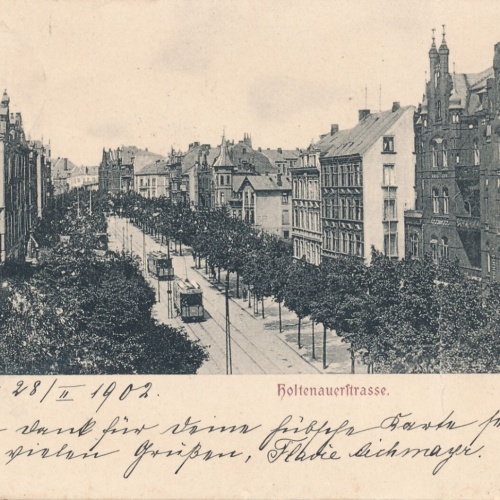 28/II 1902.
Holtenauerstrasse.
dank für Deine hübsche Karte
vielen Grüßen, Flavie Eichmayer.